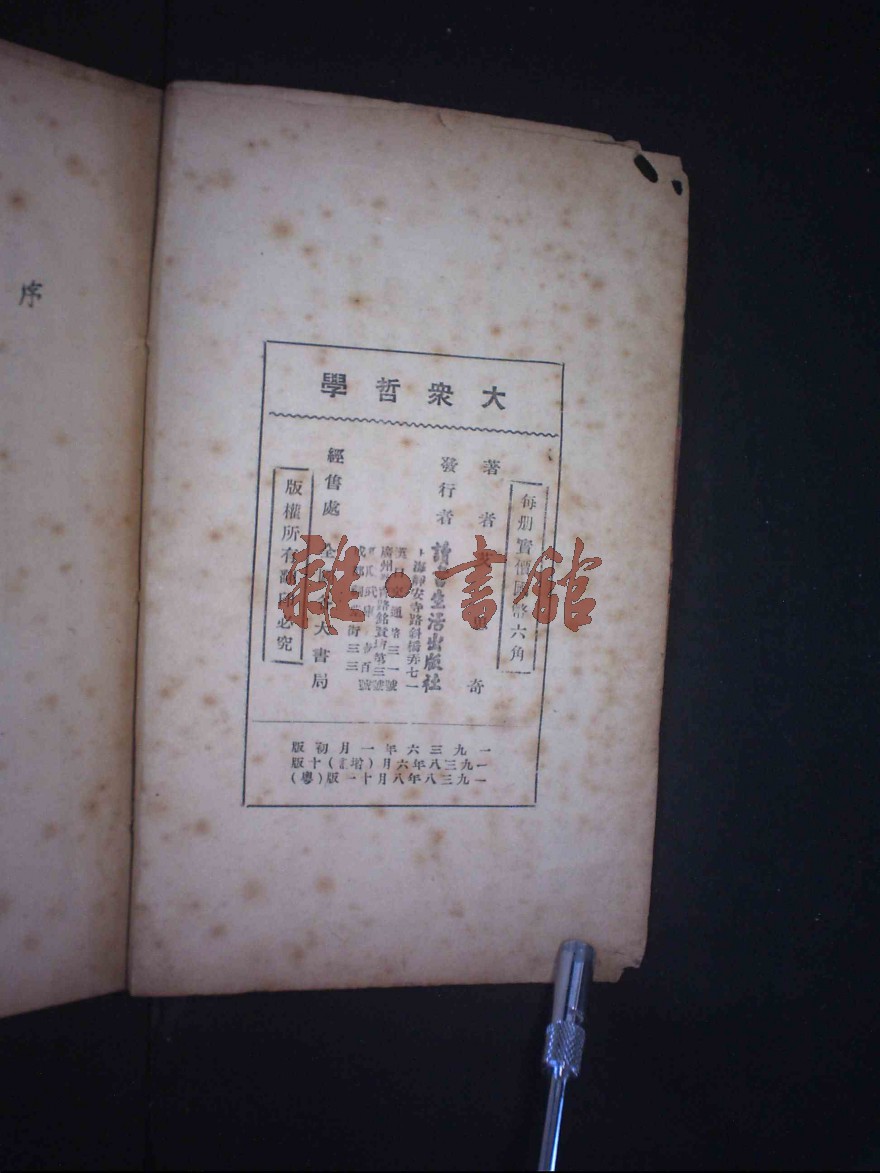 大衆哲學
每册實價國幣六角
著者 奇
發行者 讀書生活出版社
海靜安寺路斜橋弄七一
通路三一號
廣州
武庫 百號
成都 街三三
經售處 全 大書局
版權所有翻印必究
一九三六年一月初版
一九三八年六月(增訂)十版
一九三八年八月十一版(粵)
序
雜·書館